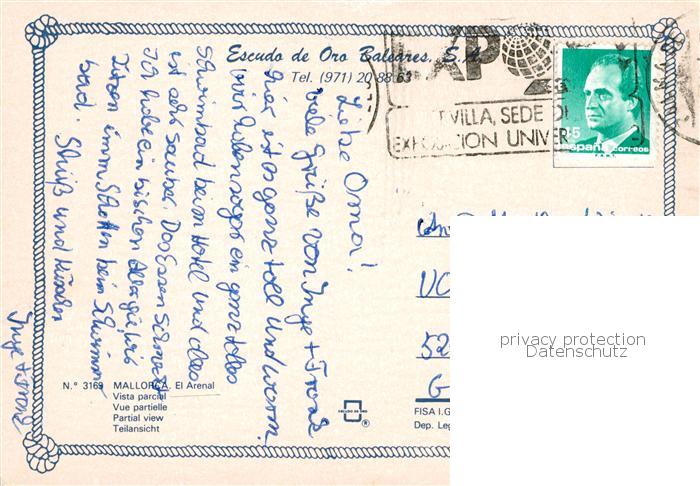 Escudo de Oro Baleares, S.A.
Tel. (971) 20 88 63
EXPO 92
SEVILLA, SEDE DE
EXPOSICION UNIVER
45
españa correos
F.N.M.T.
Liebe Oma!
viele Grüße von Inge + Frank
hier ist es ganz toll und warm.
wir haben sogar ein ganz tolles
Schwimmbad beim Hotel und das
ist sehr sauber. Das Essen schmeckt
Ich habe ein bischen Allergie, wir
sitzen immer im Schatten beim Schwimm
bad. Gruß und Küsse
Inge + Frank
N.° 3169 MALLORCA. El Arenal
Vista parcial
Vue partielle
Partial view
Teilansicht
ESCUDO DE ORO
®
An
52
G
FISA I.G
Dep. Leg
privacy protection
Datenschutz